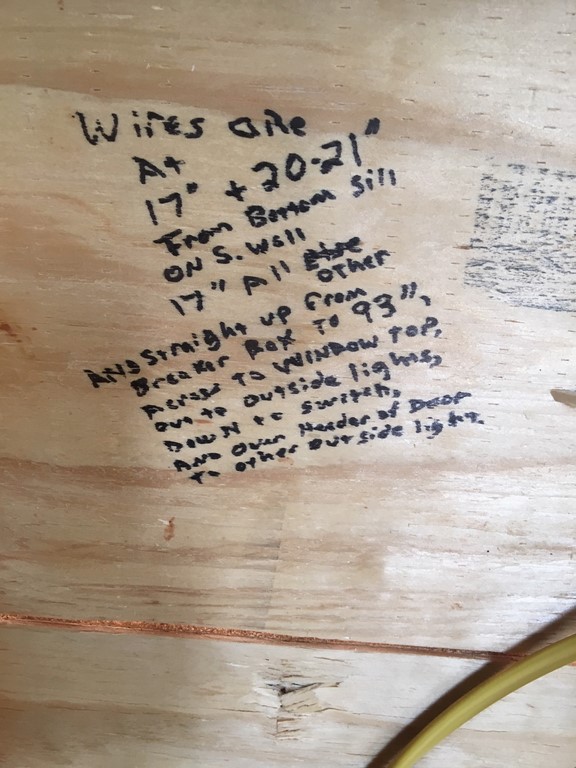 Wires are
At
17" + 20-21"
From Bottom Sill
ON S. Wall
17" All Else
Other
AND Straight up From
Breaker Box To 93",
Across To WINDOW TOP,
out to outside lights,
Down to switch,
AND Over Header of Door
To other outside lights.